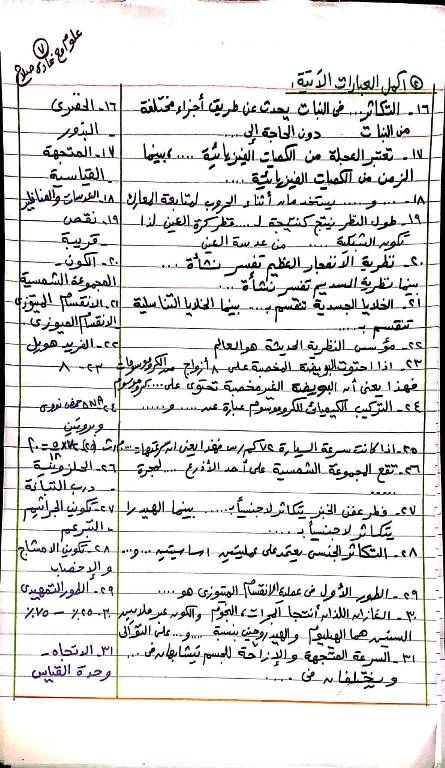 علوم مع غادة صلاح
٧
٥ أكمل العبارات الآتية:
١٦- التكاثر.... فى النبات يحدث عن طريق أجزاء مختلفة
١٦- الخضرى
من النبات دون الحاجة إلى....
- البذور
١٧- تعتبر العجلة من الكميات الفيزيائية ....، بينما
١٧- المتجهة
الزمن من الكميات الفيزيائية ....
القياسية
١٨- .... و.... يستخدمان أثناء الحروب لمتابعة المعارك
١٨- العدسات والمناظير
١٩- طول النظر ينتج كنتيجة لـ .... قطر كرة العين لذا
١٩- نقص
تكون الشبكية .... من عدسة العين
- قريبة
٢٠- نظرية الانفجار العظيم تفسر نشأة ....
٢٠- الكون -
بينما نظرية السديم تفسر نشأة ....
المجموعة الشمسية
٢١- الخلايا الجسدية تنقسم بـ .... بينما الخلايا التناسلية
٢١- الانقسام الميتوزى
تنقسم بـ ....
الانقسام الميوزى
٢٢- مؤسس النظرية الحديثة هو العالم
٢٢- الفريد هويل
٢٣- اذا احتوت البويضة المخصبة على ٨ أزواج من الكروموسومات
٢٣- ٨
فهذا يعنى أن البويضة الغير مخصبة تحتوى على .... كروموسوم
٢٤- التركيب الكيميائى للكروموسوم عبارة عن .... و....
٢٤- DNA حمض نووى
وبروتين
٢٥- اذا كانت سرعة السيارة ٧٢ كم/س فهذا يعنى ان سرعتها = .... م/ث
٢٦- تقع المجموعة الشمسية على أحد الأذرع .... لمجرة
٢٦- الحلزونية
....
- درب التبانة
٢٧- فطر عفن الخبز يتكاثر لاجنسياً بـ .... بينما الهيدرا
٢٧- تكوين الجراثيم
يتكاثر لاجنسياً بـ ....
- التبرعم
٢٨- التكاثر الجنسى يعتمد على عمليتين اساسيتين .... و....
٢٨- تكوين الامشاج
والإخصاب
٢٩- الطور الأول فى عملية الانقسام الميتوزى هو ....
٢٩- الطور التمهيدى
٣٠- الغازان اللذان أنتجا المجرات، النجوم والكون عبر ملايين
٣٠- ٢٥٪ - ٧٥٪
السنين هما الهيليوم والهيدروجين بنسبة .... و.... على التوالى
٣١- السرعة المتجهة والإزاحة للجسم تتشابهان فى ....
٣١- الاتجاه -
ويختلفان فى ....
وحدة القياس